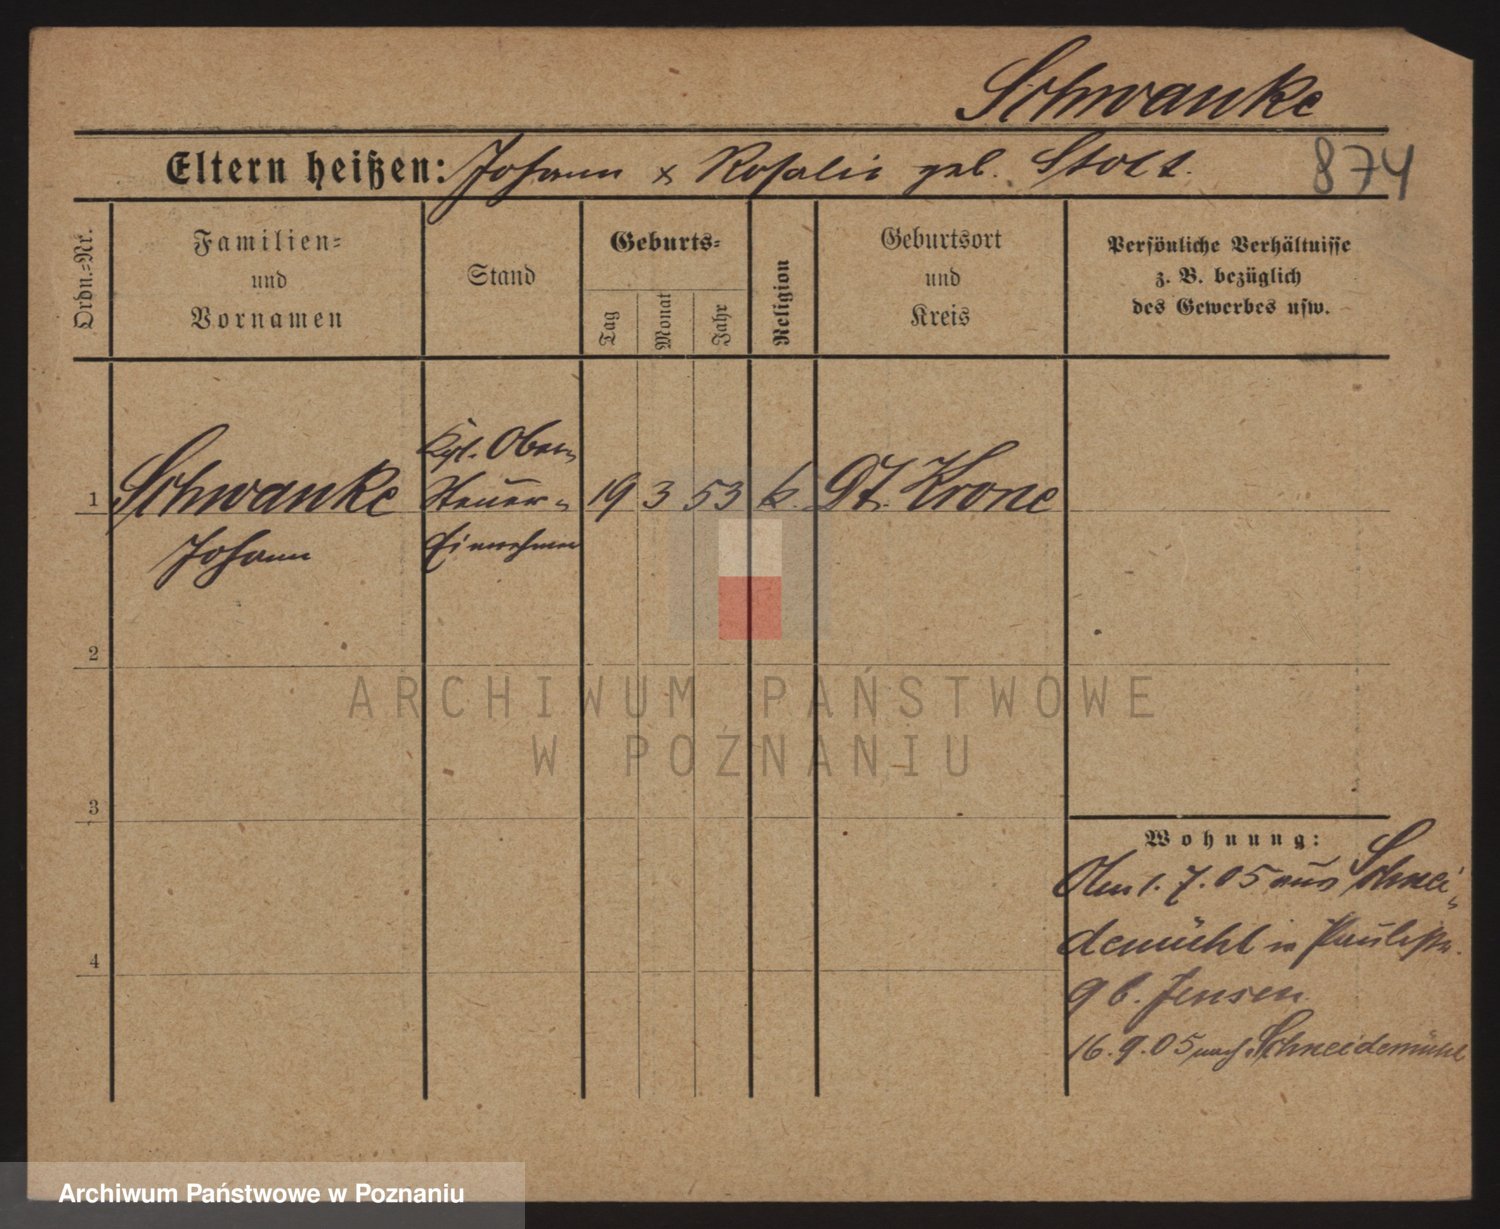 Schwanke
Eltern heißen: Johann x Rosalie geb. Stolt.
874
Ordn.=Nr.
Familien=
und
Vornamen
Stand
Geburts=
Tag
Monat
Jahr
Religion
Geburtsort
und
Kreis
Persönliche Verhältnisse
z. B. bezüglich
des Gewerbes usw.
Kgl. Ober-
1 Schwanke Steuer- 19 3 53 k. Dt. Krone
Johann Einnehmer
2
3
4
Wohnung:
1.7.05 aus Schnei-
demühl in Paulistr.
9 b. Jensen
16.9.05 nach Schneidemühl
ARCHIWUM PAŃSTWOWE
W POZNANIU
Archiwum Państwowe w Poznaniu